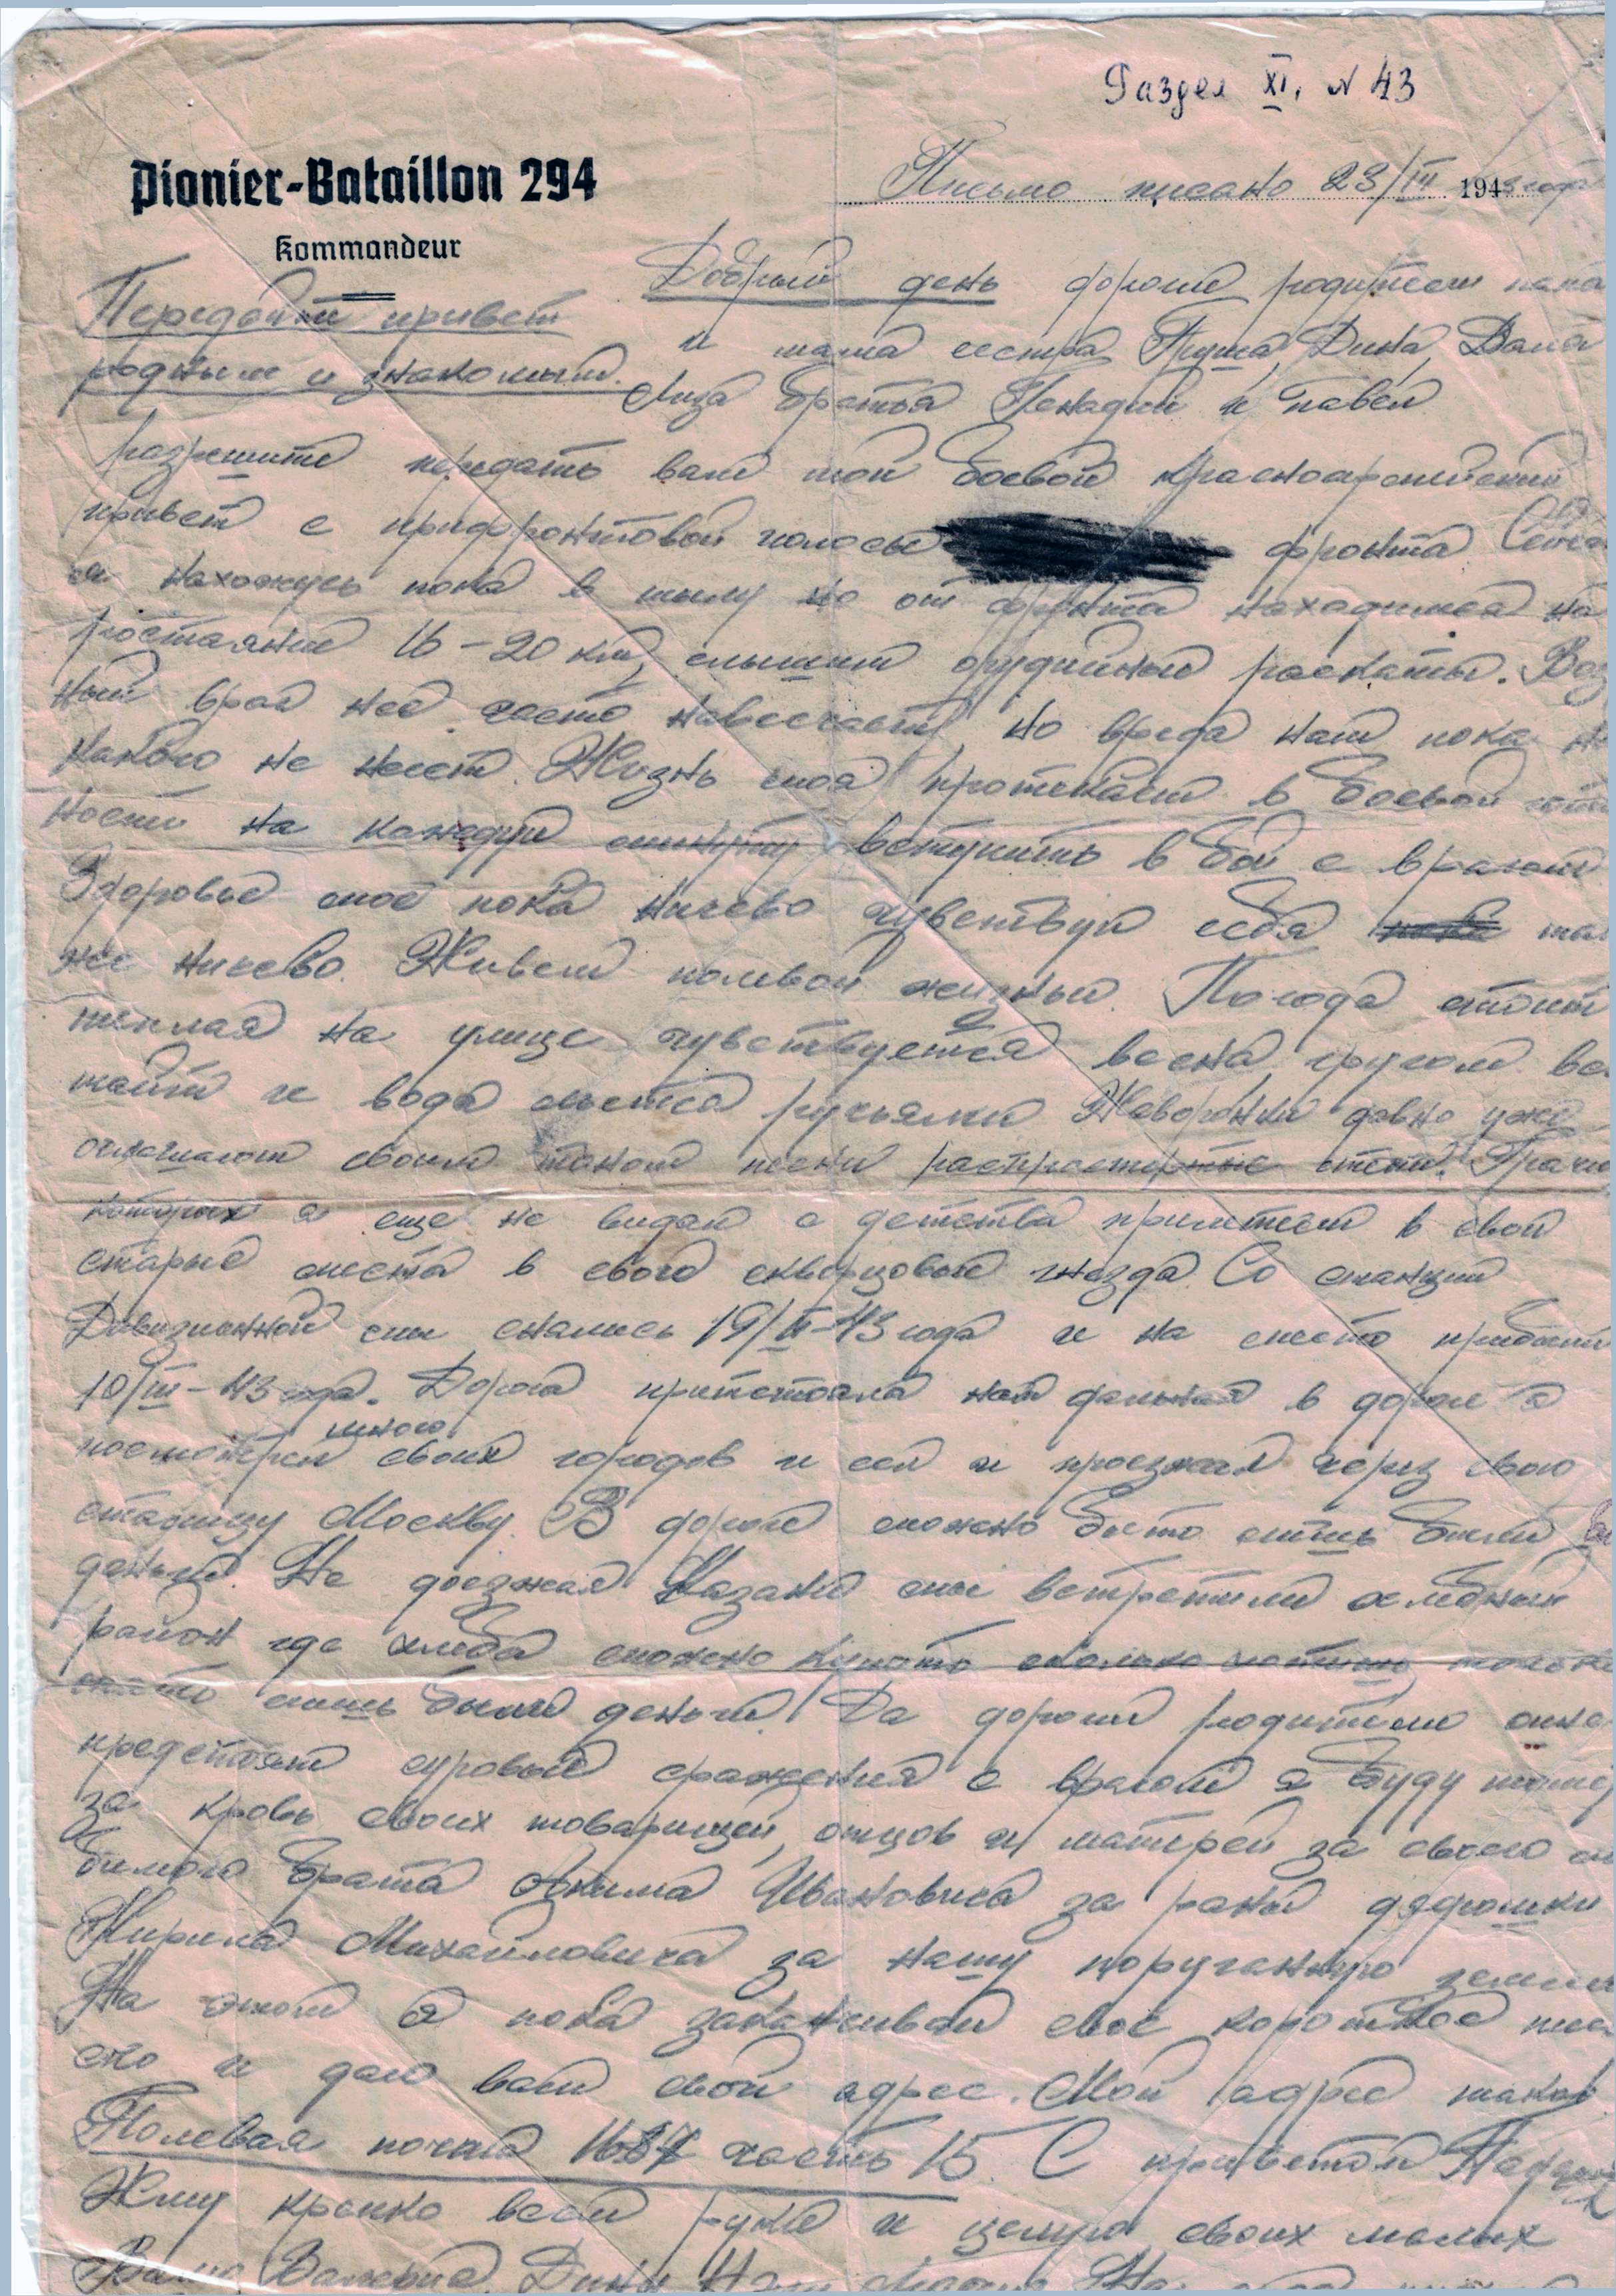 Раздел XI, N 43
Pionier-Bataillon 294
Kommandeur
Письмо писано 23/III 1943 года
Передайти привет
родным и знакомым.
Добрый день дороги родители папа
и мама сестра Дина, Вама
Лиза братья Генадий и Павел
разрешите передать вам мой боевой красноармейский
привет с прифронтовой полосы фронта
я нахожусь пока в тылу но от фронта находимся на
ростаяние 16-20 км, слышим орудийный раскаты. Воз
ный враг нас часто навесчает, но вреда нам пока ни
какого не несет. Жизнь моя протекает в боевой гото
ности на каждую минуту вступить в бой с врагом
Здоровье моё пока ничево чувствую себя так
же ничево. Живем полевой жизнью. Погода стоит
теплая на улице чувствуется весна, кругом все
таит и вода льется ручьями. Жаворонки давно уже
оглашают своим песни распростертые степи. Грачи
которых я еще не видал с детства прилители в свои
старые места в своео скворцовые гнезда. Со станции
Дивизионной мы снались 19/II-43 года и на место прибыли
10/III-43 года. Дорога притстояла нам дальная в дороги я
посмотрел много своих городов и сел и проезжал через свою
столицу Москву. В дороги можно было лишь были
деньги. Не доезжая Казани мы встретили хлебный
район где хлеба можно купить сколько хотишь только
лишь были деньги. Да дороги родители мне
предстоят суровые сражения с врагом я буду мстить
за кровь своих товарищей, отцов и матерей за своего лю
бимого брата Акима Ивановича за раны дядюшки
Кирила Михайловича за нашу поруганную землю
На этом я пока заканчиваю свое короткое пис
мо и даю вам свой адрес. Мой адрес такой
Полевая почта 1687 часть 15. С приветом
Жму крепко всем руки и целую своих милых
Валерия, Дину